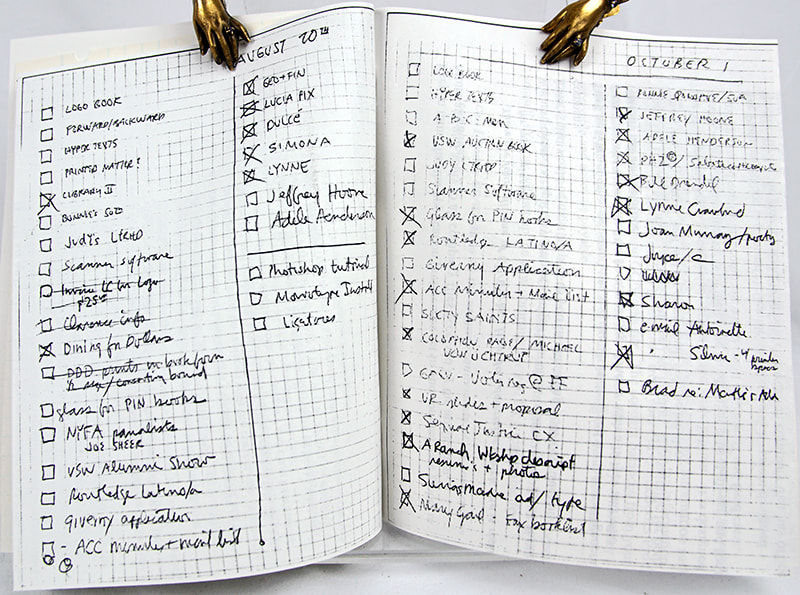 AUGUST 20TH
LOGO BOOK
FORWARD/BACKWARD
HYPER TEXTS
PRINTED MATTER?
LIBRARY II
BONNIE'S
JUDY'S LTRHD
Scanner software
for Logo
Clarence info
Dining for Dollars
DDD prints in book form
glass for PIN hooks
NYFA panelists
JOE SHEER
VSW Alumni Show
Routledge Latino/a
Giverny application
- ACC minutes + mail list
GEO + FIN
LUCIA PIX
DULCE
SIMONA
LYNNE
Jeffrey Hoone
Adele Henderson
Photoshop tutorial
Monotype Install
Ligatures
OCTOBER 1
LOGO BOOK
HYPER TEXTS
A B C
VSW AUCTION BOOK
JUDY LTRHD
Scanner Software
Glass for PIN hooks
Routledge LATINO/A
Giverny Application
ACC Minutes + Mail List
SIXTY SAINTS
COLOPHON PAGE / MICHAEL
VR slides + proposal
A Ranch Wkshop descript
resumes + photos
ad/type
Mary Gail - Fax book list
JEFFREY HOONE
ADELE HENDERSON
Bill
Lynne Crawford
Joan Murray/
Joyce/c
Sharon
email Antoinette
Brad re: